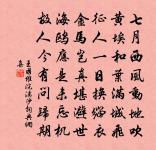 七月西風動地吹
黃埃和葉滿城飛
征人一日換緇衣
金馬豈真堪避世
海鷗應是未忘機
故人今有問歸期
王國維浣溪沙